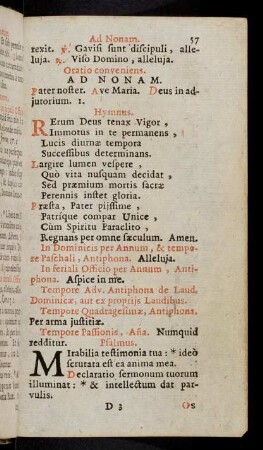 Ad Nonam. 57
rexit. ℣. Gavisi sunt discipuli, alle-
luja. ℟. Viso Domino, alleluja.
Oratio conveniens.
AD NONAM.
Pater noster. Ave Maria. Deus in ad-
jutorium. 1.
Hymnus.
REerum Deus tenax Vigor,
Immotus in te permanens,
Lucis diurnæ tempora
Successibus determinans.
Largire lumen vespere,
Quò vita nusquam decidat,
Sed præmium mortis sacræ
Perennis instet gloria.
Præsta, Pater piissime,
Patrisque compar Unice,
Cùm Spiritu Paraclito,
Regnans per omne sæculum. Amen.
In Dominicis per Annum, & tempo-
re Paschali, Antiphona. Alleluja.
In feriali Officio per Annum, Anti-
phona. Aspice in me.
Tempore Adv. Antiphona de Laud.
Dominicæ, aut ex proprijs Laudibus.
Tempore Quadragesimæ, Antiphona.
Per arma justitiæ.
Tempore Passionis, Aña. Numquid
redditur. Psalmus.
MIrabilia testimonia tua: * ideò
scrutata est ea anima mea.
Declaratio sermonum tuorum
illuminat: * & intellectum dat par-
vulis.
D 3 Os